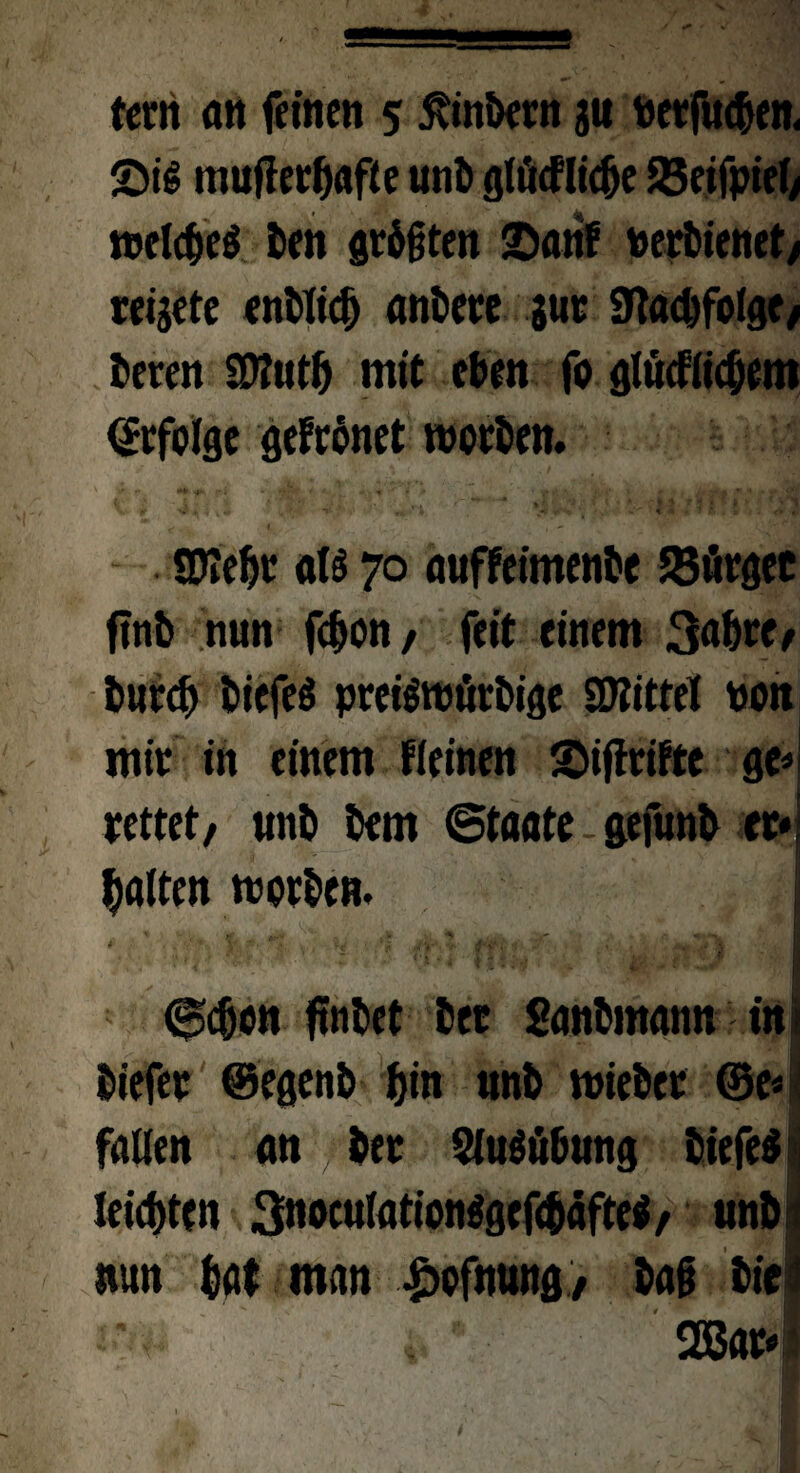 tern an ſeinen 5 Kindern zu verſuchen.
Dis muſterhafte und glückliche Beiſpiel,
welches den größten Dank verdienet,
reizete endlich andere zur Nachfolge,
deren Muth mit eben ſo glücklichem
Erfolge gekrönet worden.
Mehr als 70 aufkeimende Bürger
ſind nun ſchon, ſeit einem Jahre,
durch dieſes preiswürdige Mittel von
mir in einem kleinen Diſtrikte ge-
rettet, und dem Staate geſund er-
halten worden.
Schon findet der Landmann in
dieſer Gegend hin und wieder Ge-
fallen an der Ausübung dieſes
leichten Inoculationsgeſchäftes, und
nun hat man Hofnung, daß die
War-